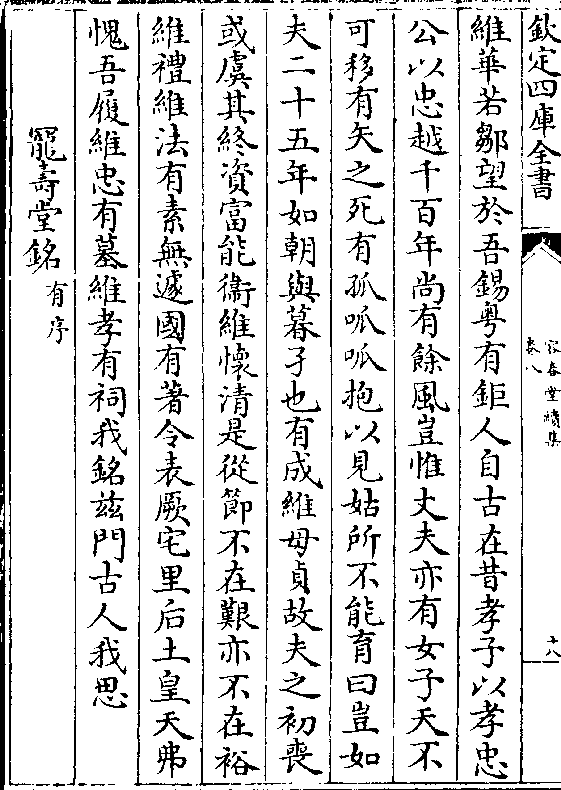 欽定四庫全書
容春堂續集
卷八
十八
維華若鄒望於吾錫粤有鉅人自古在昔孝子以孝忠
公以忠越千百年尚有餘風豈惟丈夫亦有女子天不
可移有矢之死有孤呱呱抱以見姑所不能育曰豈如
夫二十五年如朝與暮子也有成維母貞故夫之初喪
或虞其終資富能衞維懷清是從節不在艱亦不在裕
維禮維法有素無遽國有著令表厥宅里后土皇天弗
愧吾履維忠有墓維孝有祠我銘兹門古人我思
寵壽堂銘有序